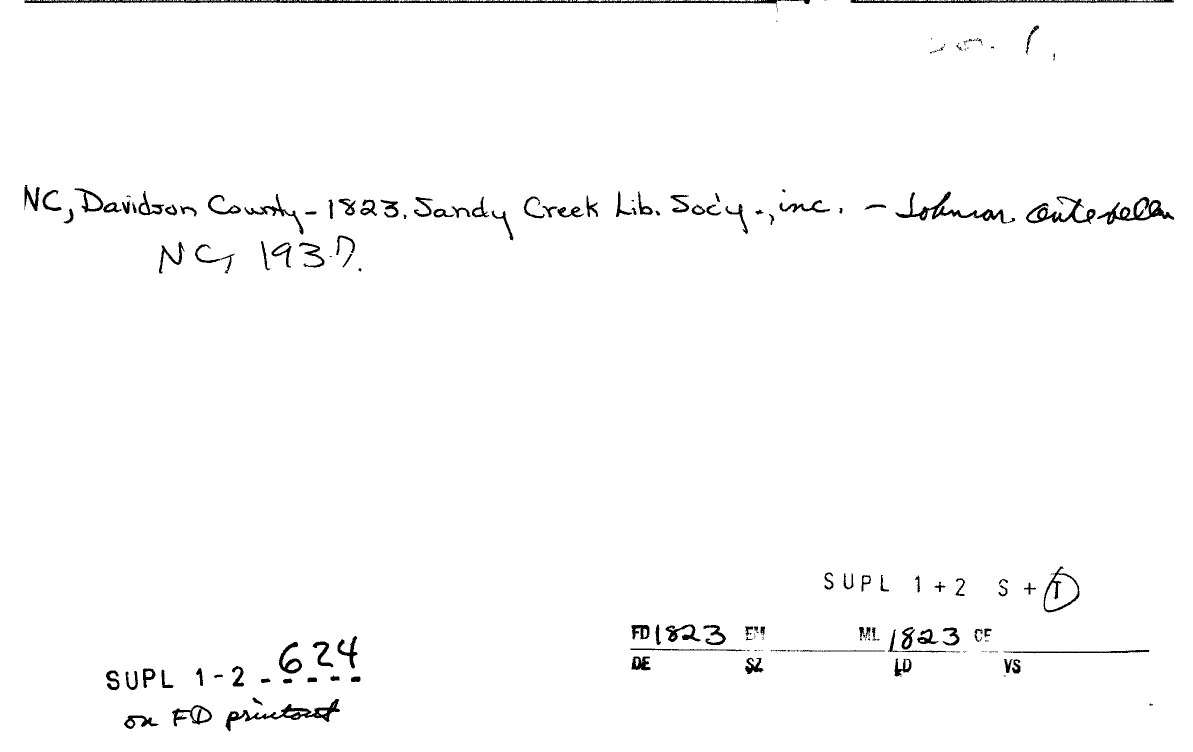 NC, Davidson County - 1823. Sandy Creek Lib. Soc'y., inc. - Johnson Antebellum
NC, 1937.
SUPL 1+2 S + T
FD 1823 EM ML 1823 CE
DE SZ LD VS
SUPL 1-2 - 624
on FD printout